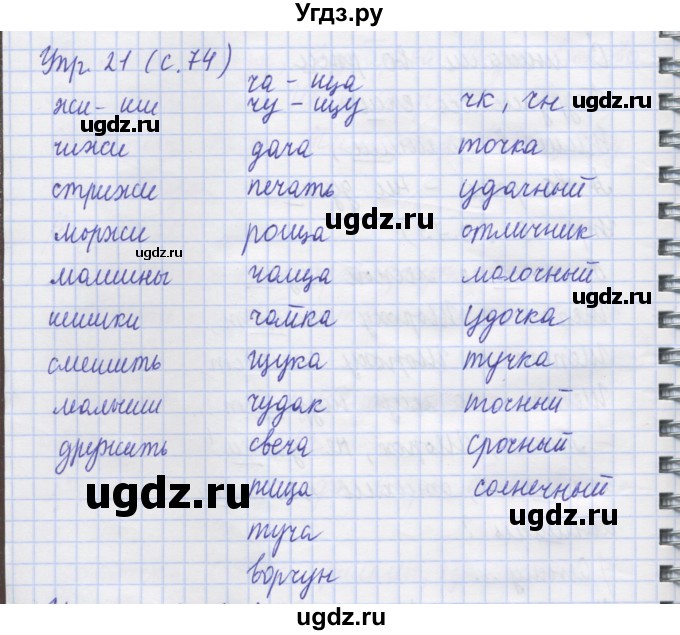 Угдз.ру
Упр. 21 (с. 74)
ча - ща
жи - ши чу - щу чк, чн
ugdz.ru ugdz.ru
чижи дача точка
стрижи печать удачный
ugdz.ru
моржи роща отличник
машины чаща молочный
ugdz.ru
чайка удочка
смешить щука тучка
малыши чудак точный
дружить свеча срочный
пища солнечный
ugdz.ru ugdz.ru
туча
ворчун
ugdz.ru